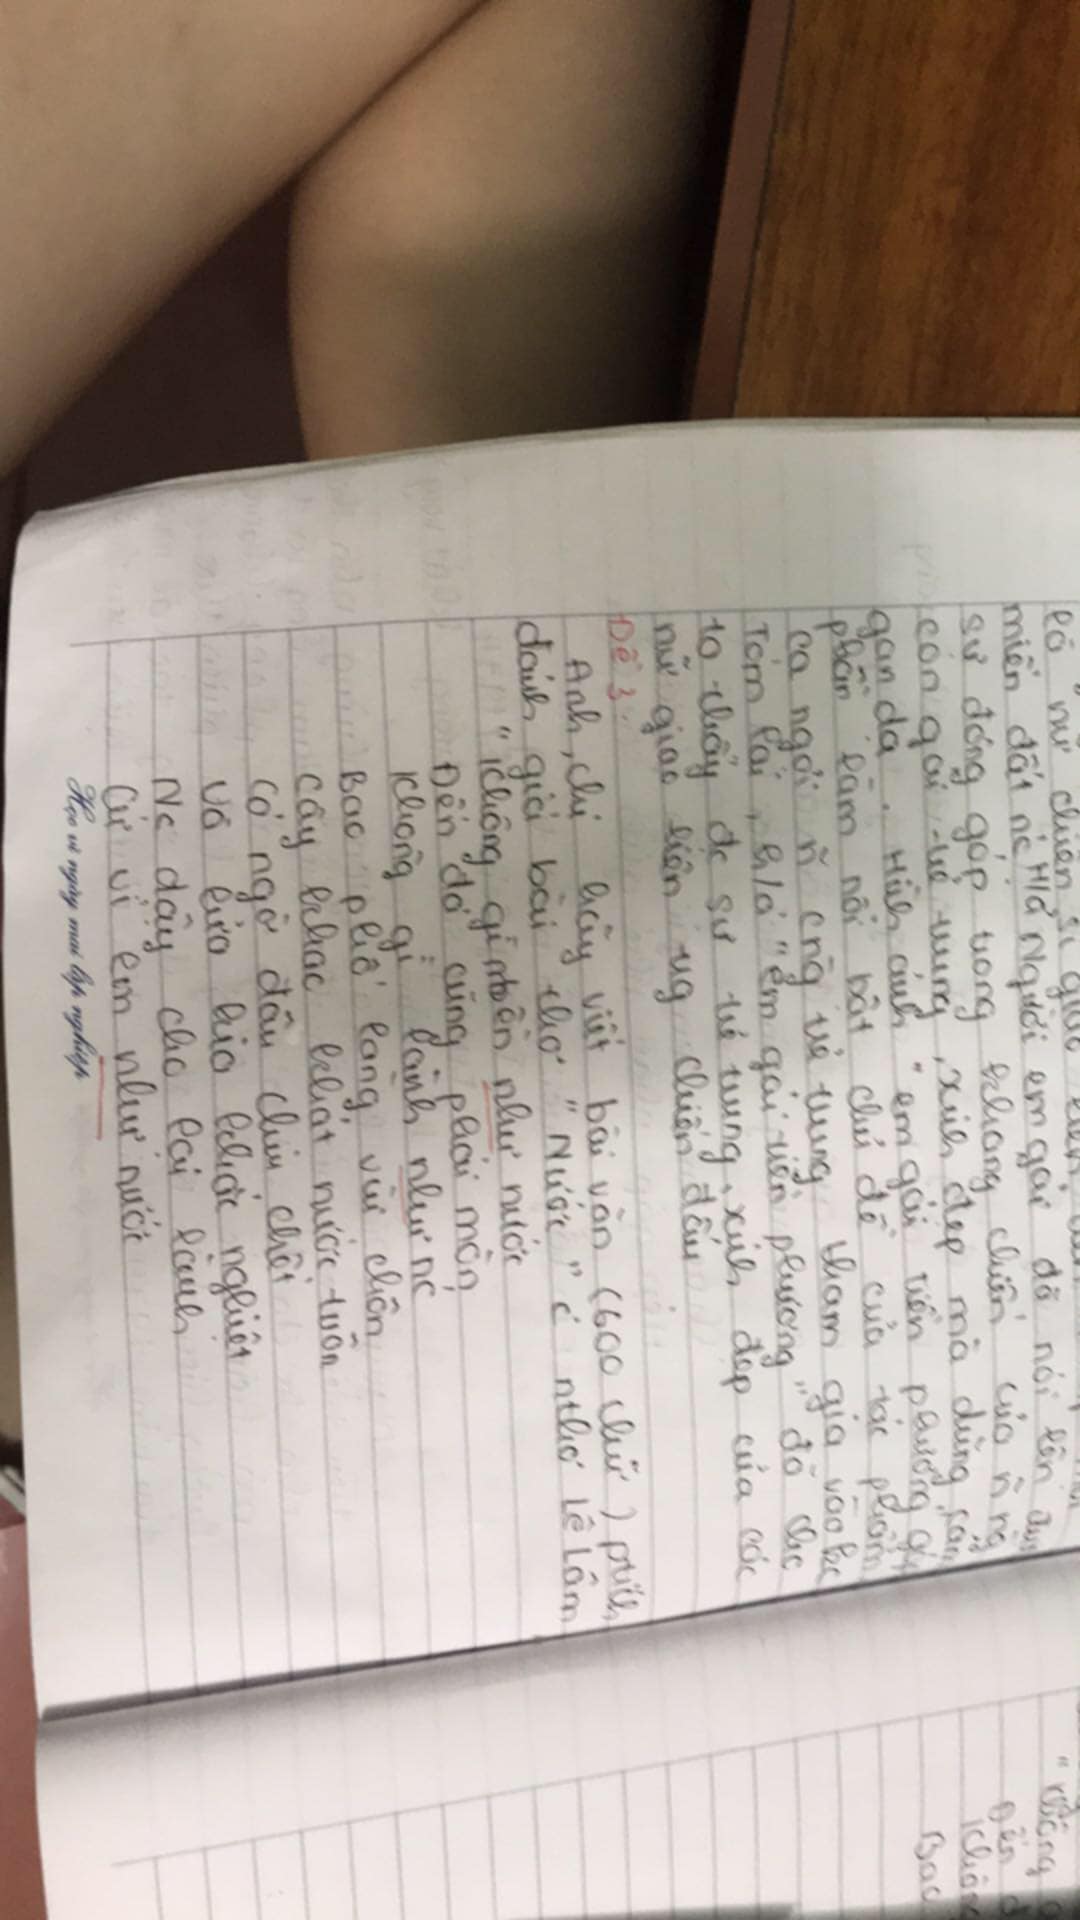 là nữ chiến sĩ giao liên
miền đất nc H/ả Người em gái đã nói lên
sự đóng góp trong kháng chiến của ñ ng
con gái trẻ trung, xinh đẹp mà dũng cảm
gan dạ. Hình ảnh "em gái tiền phương góp
phần làm nổi bật chủ đề của tác phẩm
ca ngợi ñ cng trẻ trung tham gia vào
Tóm lại, h/ả "em gái tiền phương" đã cho
ta thấy đc sự trẻ trung, xinh đẹp của các
nữ giao liên trg chiến đấu
Đề 3:
Anh, chị hãy viết bài văn (600 chữ) ptích,
đánh giá bài thơ "Nước" c nthơ Lê Lâm
"Không gì mềm như nước
Đến đá cũng phải mòn
Không gì lành như nc
Bao phố làng vùi chôn
Cây khác khát nước tuôn
Có ngờ đâu chìm chết
Và lửa kia khốc nghiệt
Nc dậy cho lại lành
Cứ ví em như nước
Học vì ngày mai lập nghiệp
"Không
Đến đ
Không
Bao